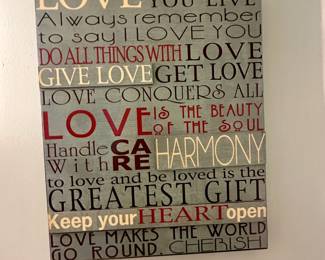 LOVE YOU LIVE
Always remember
to say I LOVE YOU
DO ALL THINGS WITH LOVE
GIVE LOVE GET LOVE
LOVE CONQUERS ALL
LOVE IS THE BEAUTY
OF THE SOUL
Handle With CARE HARMONY
to love and be loved is the
GREATEST GIFT
Keep your HEART open
LOVE MAKES THE WORLD
GO ROUND. CHERISH